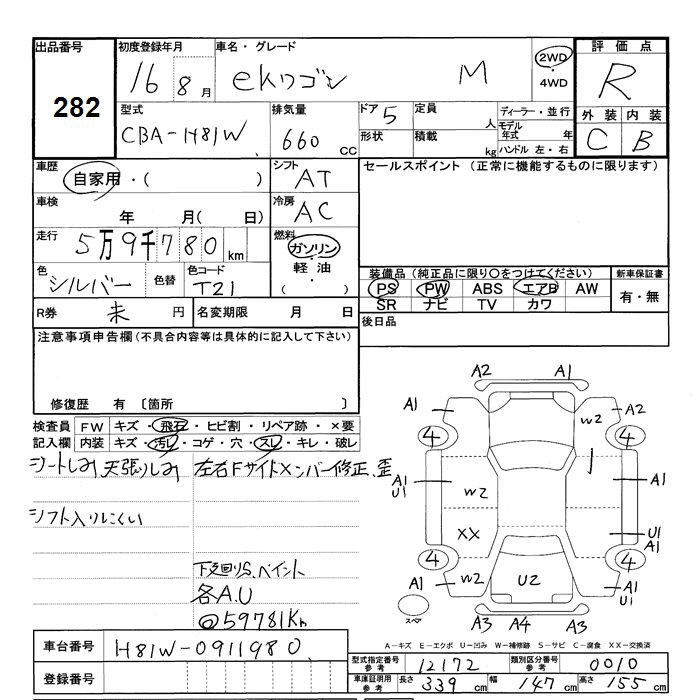 出品番号 初度登録年月 車名・グレード 2WD 評価点
282 16 8月 ekワゴン M ・4WD R
型式 排気量 ドア 5 定員 人 ディーラー・並行 外装 内装
CBA-H81W 660 CC 形状 積載 kg モデル年式 年 C B
ハンドル 左・右
車歴 シフト セールスポイント (正常に機能するものに限ります)
自家用・( ) AT
車検 冷房
年 月( 日) AC
走行 5万9千780km 燃料
ガソリン
色 シルバー 色替 色コード T21 軽油
・( )
装備品 (純正品に限り○をつけてください) 新車保証書
PS PW ABS エアB AW 有・無
SR ナビ TV カワ
R券 未 円 名変期限 月 日 後日品
注意事項申告欄 (不具合内容等は具体的に記入して下さい)
修復歴 有 〔箇所 〕
検査員 FW キズ・飛石・ヒビ割・リペア跡・×要
記入欄 内装 キズ・汚レ・コゲ・穴・スレ・キレ・破レ
シートしみ 天張りしみ 左右Fサイドメンバー修正、歪
シフト入りにくい
下廻りS、ペイント
各A.U
@59781Km
A2 A1
A1 W2 A2
4 4
A1 U1 W2 A1
XX U1 A1
4 4
A1 W2 U2 A1
スペア A3 A4 A3
A-キズ E-エクボ U-凹み W-補修跡 S-サビ C-腐食 XX-交換済
車台番号 H81W-0911980
型式指定番号 参考 12172 類別区分番号 参考 0010
登録番号
車庫証明用 参考 長さ 339 cm 幅 147 cm 高さ 155 cm